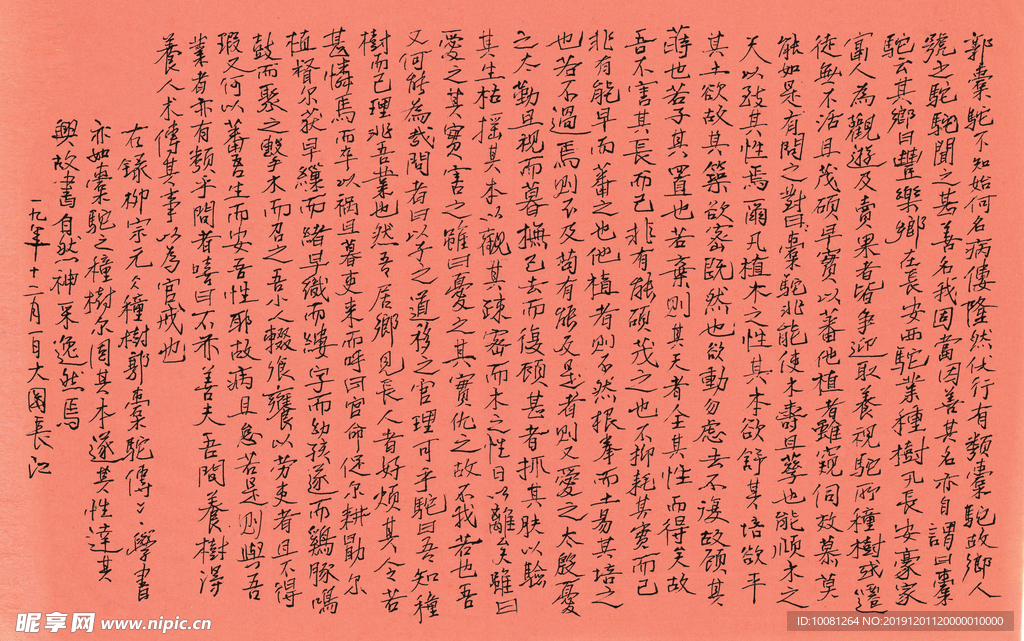 郭橐駝不知始何名病僂隆然伏行有類橐駝故鄉人
號之駝駝聞之甚善名我固當因善其名亦自謂曰橐
駝云其鄉曰豐樂鄉在長安西駝業種樹凡長安豪家
富人為觀遊及賣果者皆爭迎取養視駝所種樹或遷
徙無不活且茂碩早實以蕃他植者雖窺伺效慕莫
能如是有問之對曰橐駝非能使木壽且孳也能順木之
天以致其性焉爾凡植木之性其本欲舒其培欲平
其土欲故其築欲密既然也欲動勿慮去不復故顧其
蒔也若子其置也若棄則其天者全其性而得矣故
吾不害其長而已非有能碩茂之也不抑耗其實而已
非有能早而蕃之也他植者則不然根拳而土易其培之
也若不過焉則不及苟有能反是者則又愛之太殷憂
之太勤且視而暮撫已去而復顧甚者抓其膚以驗
其生枯搖其本以觀其疎密而木之性日以離矣雖曰
愛之其實害之雖曰憂之其實仇之故不我若也吾
又何能為哉問者曰以子之道移之官理可乎駝曰吾知種
樹而已理非吾業也然吾居鄉見長人者好煩其令若
甚憐焉而卒以禍且暮吏來而呼曰官命促尔耕勖尔
植督尔获早繅而緒早織而縷字而幼孩遂而鷄豚鳴
鼓而聚之擊木而召之吾小人輟飧饔以勞吏者且不得
瑕又何以蕃吾生而安吾性耶故病且怠若是則與吾
業者亦有類乎問者嘻曰不亦善夫吾問養樹得
養人术傳其事以為官戒也
右錄柳宗元種樹郭橐駝傳學書
亦如橐駝之種樹尔固其本遂其性達其
興故書自然神采逸然焉
一九年十二月一日大國長江
昵享网 www.nipic.cn
ID:10081264 NO:20191201120000010000